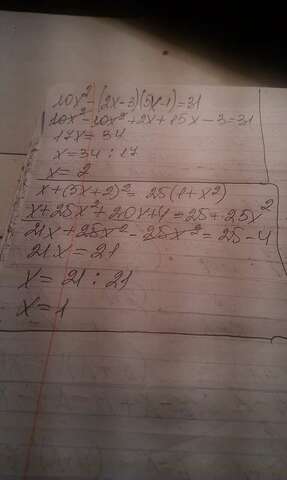 10x²-(2x-3)(5x-1)=31
10x²-10x²+2x+15x-3=31
17x=34
x=34:17
x=2
x+(5x+2)²=25(1+x²)
x+25x²+20x+4=25+25x²
21x+25x²-25x²=25-4
21x=21
x=21:21
x=1